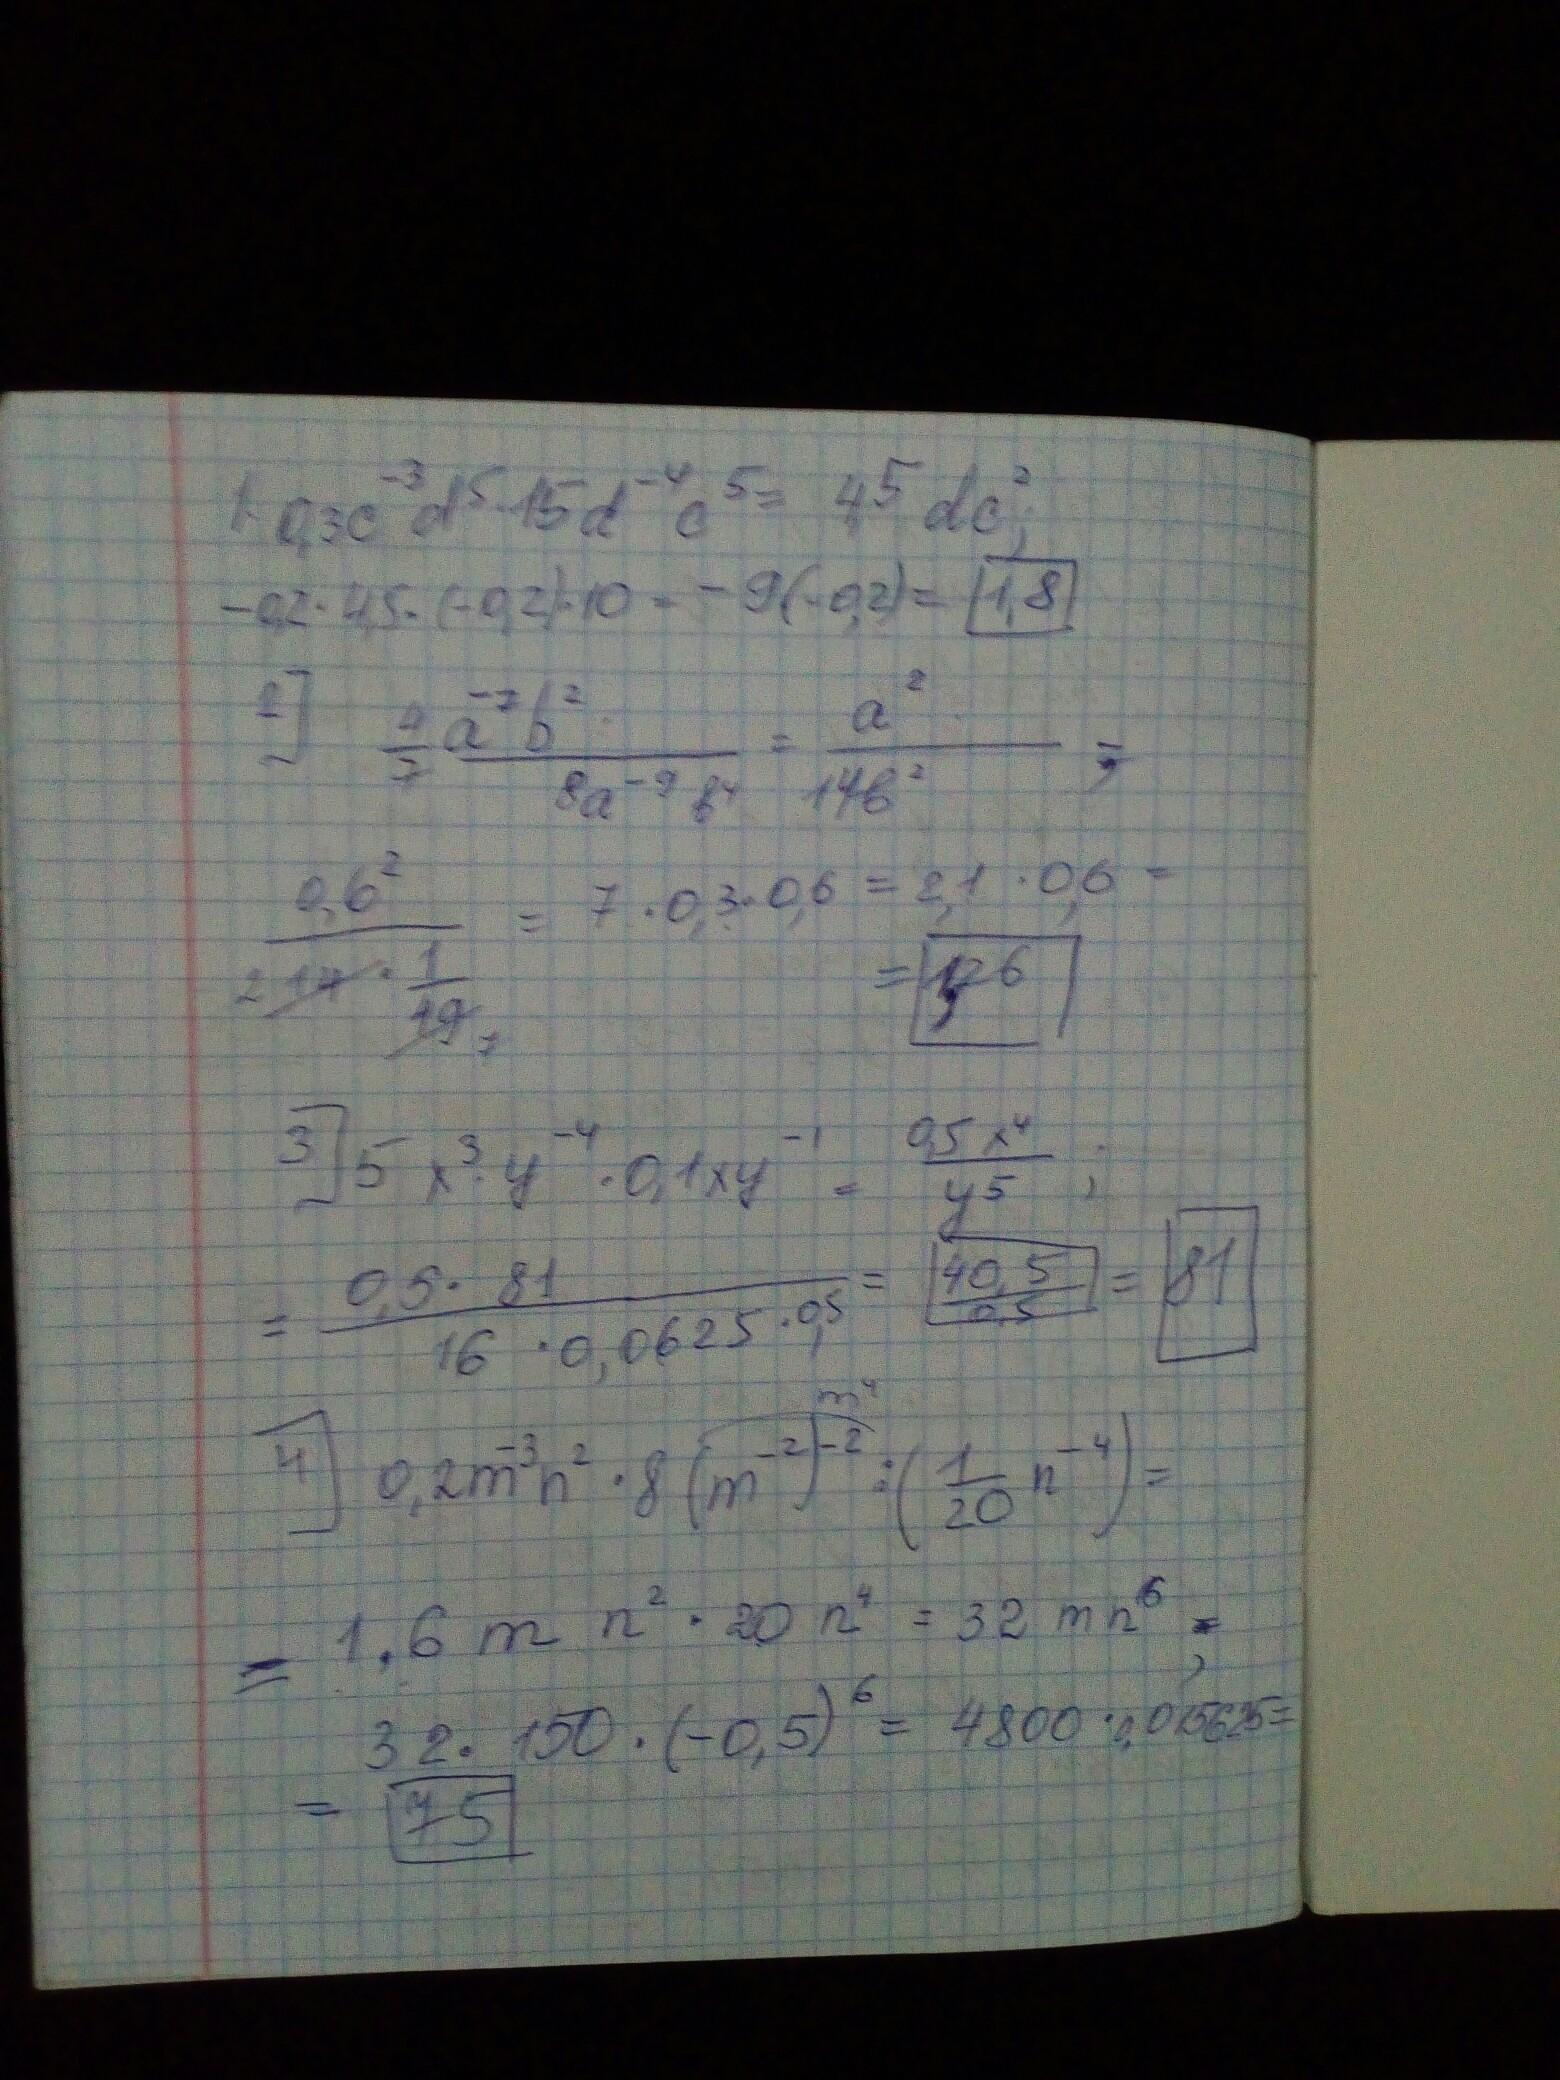 1. 0,3c⁻³d⁵·15d⁻⁴c⁵ = 4,5 dc²;
-0,2·4,5·(-0,2)·10 = -9(-0,2) = 1,8
2] 4/7 a⁻⁷b² / 8a⁻⁹b⁴ = a² / 14b² ;
0,6² / 2 14 · 1/49 7 = 7·0,3·0,6 = 2,1·0,6 =
= 1,26
3] 5x³·y⁻⁴·0,1xy⁻¹ = 0,5x⁴ / y⁵ ;
= 0,5·81 / 16·0,0625·0,5 = 40,5 / 0,5 = 81
m⁴
4] 0,2m⁻³n²·8(m⁻²)⁻² : (1/20 n⁻⁴) =
= 1,6 m n²·20 n⁴ = 32 mn⁶ ;
32·150·(-0,5)⁶ = 4800·0,015625 =
= 75